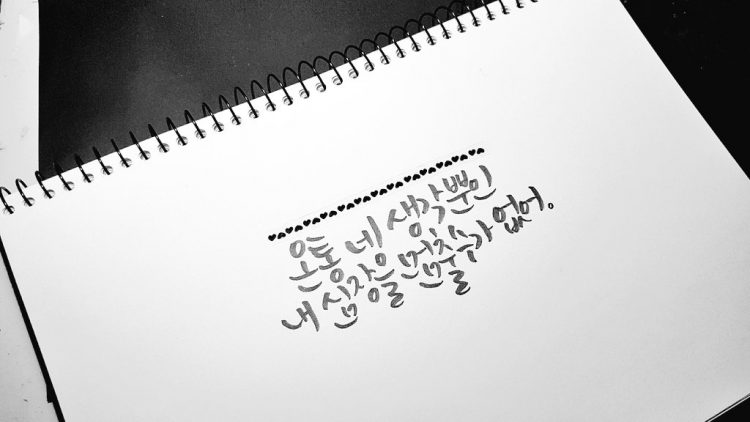 온통 네 생각뿐인
내 심장은 멈출수가 없어.